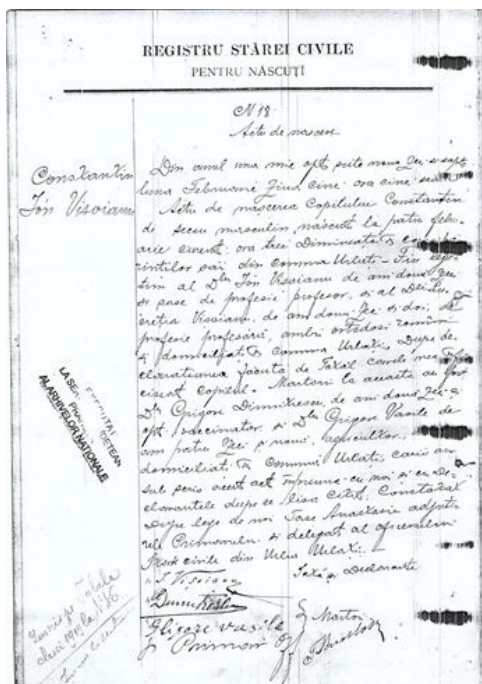 REGISTRU STĂREI CIVILE
PENTRU NĂSCUȚI
N 18
Actu de nascere
Constantin
Ión Visoianu
Din anul una mie opt sute noua zeci si șapte
luna Februarie ziua cinci ora cinci
Actu de nascerea Copilului Constantin
de secsu masculin, născut la patru febru-
arie curent, ora trei dimineata in casa pă-
rintilor săi din comuna Urlati - Fiu legi-
tim al Dlui Ión Visoianu de ani două zeci
și șase de profesie profesor, și al Dnei Lu-
creția Visoianu, de ani două zeci și doi, de
profesie profesóră, ambii ortodosi romani
și domiciliați in comuna Urlati, Dupe de-
claratiunea facuta de Tatăl carele
copilul - Martori la acésta au fost
Dl Grigore Dimitrescu, de ani două zeci și
opt, vaccinator, și Dl Grigore Vasile de
ani patru zeci și nouă, agricultor,
domiciliati in Comuna Urlati, carii au
sub scris acest act impreuna cu noi și cu De-
clarantele dupe ce li s'a citit. Constatat
dupe lege de noi Anastasiu adjuto-
rele Primarului și delegat al oficerului
civile din Urbea Urlati.
I Visoianu Tată și Declarante
Dumitrescu
Gligore vasile Martori
p Primar
LA SER. JUDEȚEAN
AL ARHIVELOR NAȚIONALE